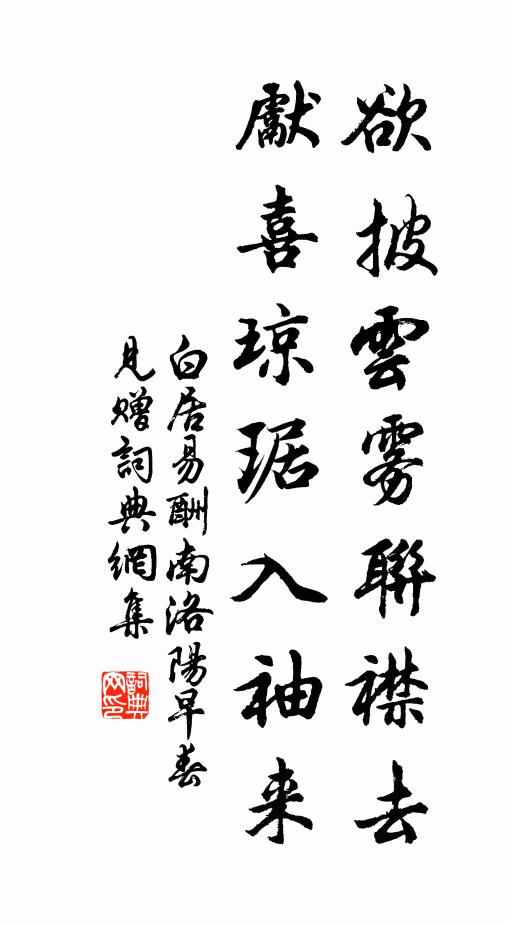 欲披雲霧聯襟去
獻喜瓊琚入袖来
白居易酬南洛陽早春
見贈詞典網集
詞典網印